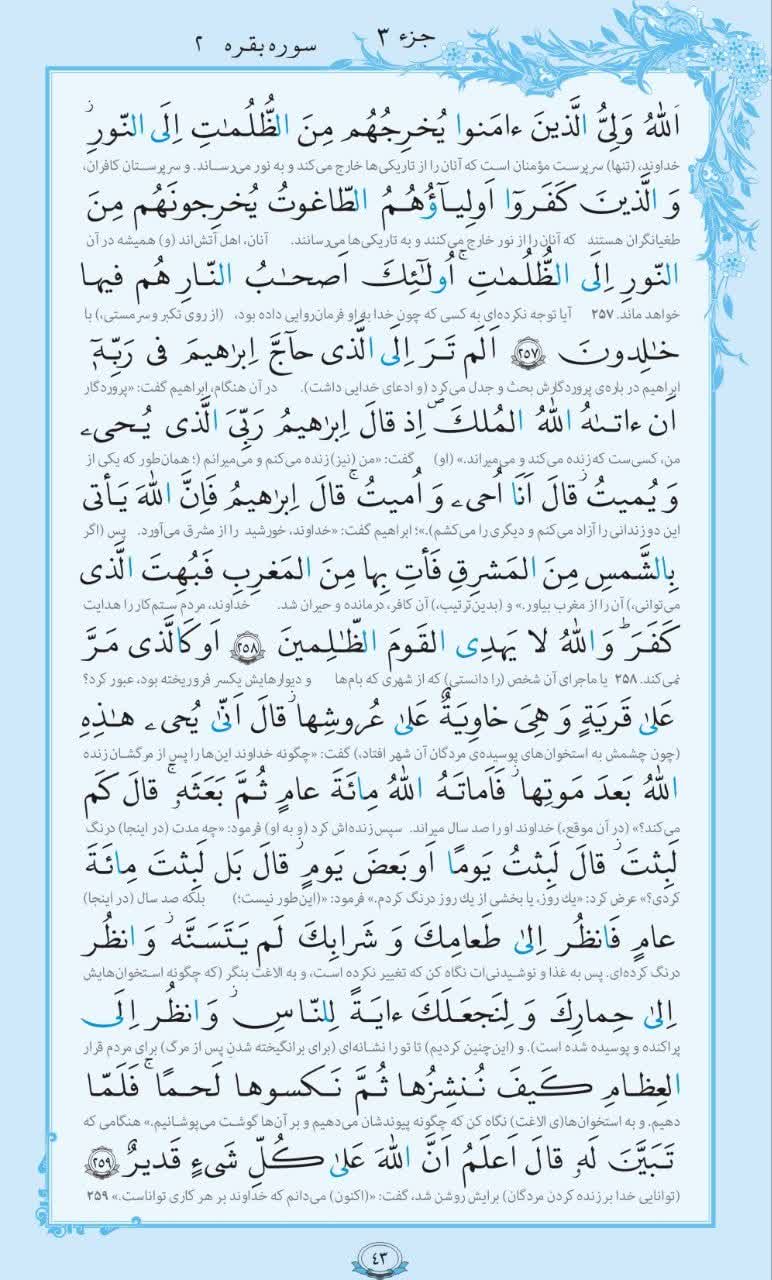 جزء ۳
سوره بقره ۲
اَللهُ وَلِیُّ الَّذینَ ءامَنوا یُخرِجُهُم مِنَ الظُّلُماتِ اِلَی النّورِ
خداوند، (تنها) سرپرست مؤمنان است که آنان را از تاریکی‌ها خارج می‌کند و به نور می‌رساند. و سرپرستان کافران،
وَ الَّذینَ کَفَرُوٓا اَولِیـآؤُهُمُ الطّاغوتُ یُخرِجونَهُم مِنَ
طغیانگران هستند که آنان را از نور خارج می‌کنند و به تاریکی‌ها می‌رسانند. آنان، اهل آتش‌اند (و) همیشه در آن
النّورِ اِلَی الظُّلُماتِ ۚ اُولٰـئِكَ اَصحابُ النّارِ هُم فیها
خواهد ماند. ۲۵۷ آیا توجه نکرده‌ای به کسی که چون خدا به او فرمان‌روایی داده بود، (از روی تکبر و سرمستی،) با
خالِدونَ ﴿۲۵۷﴾ اَلَم تَرَ اِلَی الَّذی حآجَّ اِبراهیمَ فی رَبِّهِٓ
ابراهیم در باره‌ی پروردگارش بحث و جدل می‌کرد (و ادعای خدایی داشت). در آن هنگام، ابراهیم گفت: «پروردگار
اَن ءاتىٰهُ اللهُ المُلكَ ۖ اِذ قالَ اِبراهیمُ رَبِّیَ الَّذی یُحیۦ
من، کسی‌ست که زنده می‌کند و می‌میراند.» (او) گفت: «من (نیز) زنده می‌کنم و می‌میرانم (؛ همان‌طور که یکی از
وَ یُمیتُ قالَ اَنَا اُحیۦ وَ اُمیتُ ۚ قالَ اِبراهیمُ فَاِنَّ اللهَ یَأتی
این دو زندانی را آزاد می‌کنم و دیگری را می‌کشم).»؛ ابراهیم گفت: «خداوند، خورشید را از مشرق می‌آورد. پس (اگر
بِالشَّمسِ مِنَ المَشرِقِ فَأتِ بِها مِنَ المَغرِبِ فَبُهِتَ الَّذی
می‌توانی،) آن را از مغرب بیاور.» و (بدین‌ترتیب،) آن کافر، درمانده و حیران شد. خداوند، مردم ستم‌کار را هدایت
کَفَرَ ؕ وَ اللهُ لا یَهدِی القَومَ الظّالِمینَ ﴿۲۵۸﴾ اَو کَالَّذی مَرَّ
نمی‌کند. ۲۵۸ یا ماجرای آن شخص (را دانستی) که از شهری که بام‌ها و دیوارهایش یکسر فروریخته بود، عبور کرد؟
عَلیٰ قَریَةٍ وَ هِیَ خاوِیَةٌ عَلیٰ عُروشِها قالَ اَنّیٰ یُحیۦ هٰـذِهِ
(چون چشمش به استخوان‌های پوسیده‌ی مردگان آن شهر افتاد،) گفت: «چگونه خداوند این‌ها را پس از مرگشان زنده
اللهُ بَعدَ مَوتِها فَاَماتَهُ اللهُ مِائَةَ عامٍ ثُمَّ بَعَثَهۥ ۚ قالَ کَم
می‌کند؟» (در آن موقع،) خداوند او را صد سال میراند. سپس زنده‌اش کرد (و به او) فرمود: «چه مدت (در اینجا) درنگ
لَبِثتَ قالَ لَبِثتُ یَومًا اَو بَعضَ یَومٍ قالَ بَل لَبِثتَ مِائَةَ
کردی؟» عرض کرد: «یك روز، یا بخشی از یك روز درنگ کردم.» فرمود: «(این‌طور نیست؛) بلکه صد سال (در اینجا)
عامٍ فَانظُر اِلیٰ طَعامِكَ وَ شَرابِكَ لَم یَتَسَنَّه وَ انظُر
درنگ کرده‌ای. پس به غذا و نوشیدنی‌ات نگاه کن که تغییر نکرده است، و به الاغت بنگر (که چگونه استخوان‌هایش
اِلیٰ حِمارِكَ وَ لِنَجعَلَكَ ءایَةً لِلنّاسِ وَ انظُر اِلَی
پراکنده و پوسیده شده است). و (این‌چنین کردیم) تا تو را نشانه‌ای (برای برانگیخته شدنِ پس از مرگ) برای مردم قرار
العِظامِ کَیفَ نُنشِزُها ثُمَّ نَکسوها لَحمًا ۚ فَلَمّا
دهیم. و به استخوان‌ها(ی الاغت) نگاه کن که چگونه پیوندشان می‌دهیم و بر آن‌ها گوشت می‌پوشانیم.» هنگامی که
تَبَیَّنَ لَهۥ قالَ اَعلَمُ اَنَّ اللهَ عَلیٰ کُلِّ شَیءٍ قَدیرٌ ﴿۲۵۹﴾
(توانایی خدا بر زنده کردن مردگان) برایش روشن شد، گفت: «(اکنون) می‌دانم که خداوند بر هر کاری تواناست.» ۲۵۹
۴۳